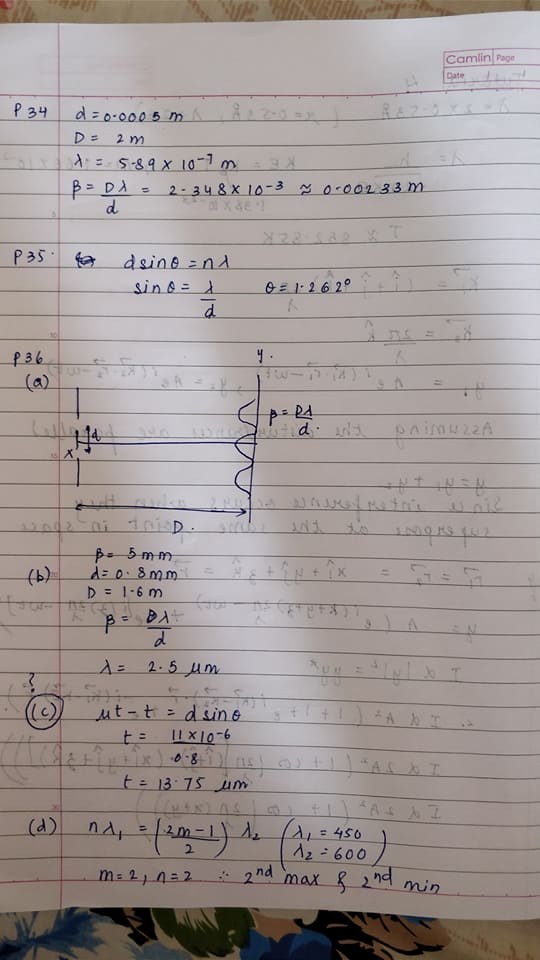 Camlin Page
Date
P34 d = 0.0005 m
D = 2 m
λ = 5.89 x 10⁻⁷ m
β = Dλ/d = 2.348 x 10⁻³ ≈ 0.00233 m
P35. d sinθ = nλ
sinθ = λ/d θ = 1.262°
P36 y.
(a)
β = Dλ/d.
d
x
D.
β = 5 mm
(b) d = 0.8 mm
D = 1.6 m
β = Dλ/d
λ = 2.5 μm
?
(c) μt - t = d sinθ
t = 11 x 10⁻⁶/0.8
t = 13.75 μm
(d) nλ₁ = (2m-1/2) λ₂ (λ₁ = 450
λ₂ = 600)
m=2, n=2 ∴ 2nd max & 2nd min